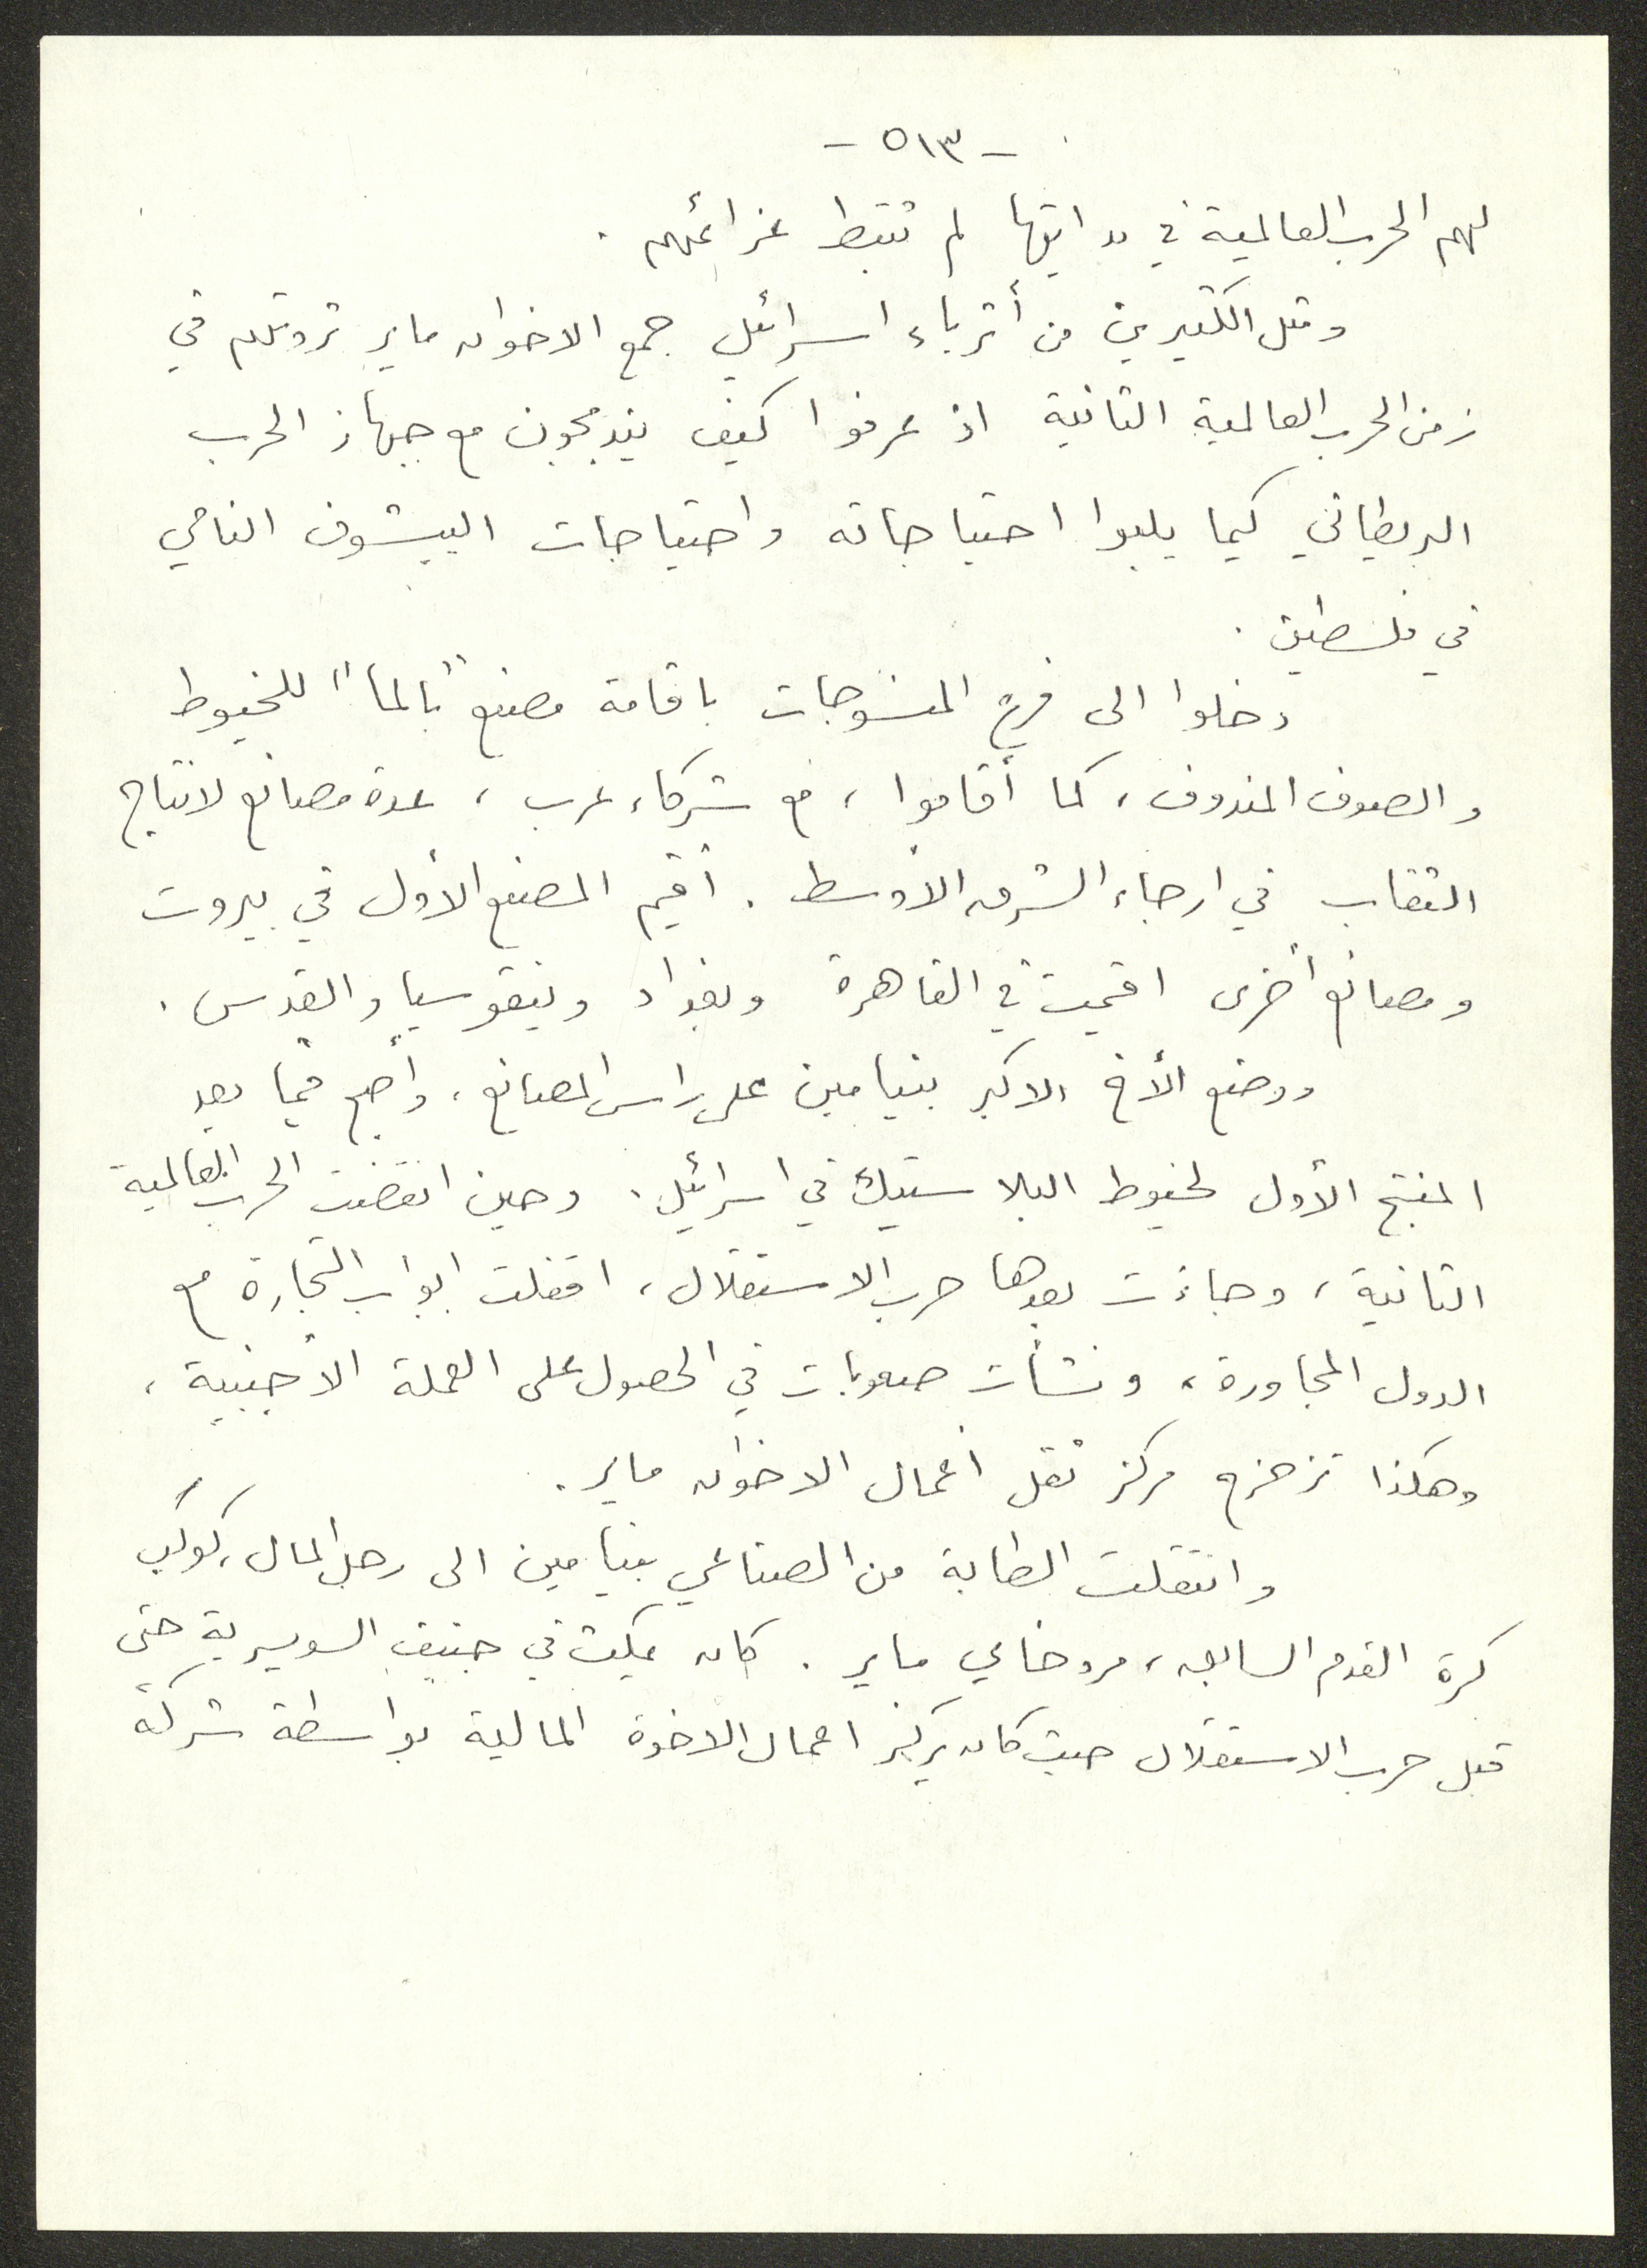 - ٥١٣ -
لهم الحرب العالمية في بدايتها لم تثبط عزائمهم .
ومثل الكثيرين من أثرياء اسرائيل جمع الاخوان ماير ثروتهم في
زمن الحرب العالمية الثانية اذ عرفوا كيف يندمجون مع جهاز الحرب
البريطاني كيما يلبوا احتياجاته واحتياجات الييشوف النامي
في فلسطين .
دخلوا الى فرع المنسوجات باقامة مصنع "بالما" للخيوط
والصوف المندوف، كما أقاموا، مع شركاء عرب، عدة مصانع لانتاج
الثقاب في ارجاء الشرق الأوسط . أقيم المصنع الأول في بيروت
ومصانع أخرى اقيمت في القاهرة وبغداد ونيقوسيا والقدس .
ووضع الأخ الاكبر بنيامين على راس المصانع، وأصبح فيما بعد
المنتج الأول لخيوط البلاستيك في اسرائيل. وحين انقضت الحرب العالمية
الثانية، وجاءت بعدها حرب الاستقلال، اقفلت ابواب التجارة مع
الدول المجاورة، ونشأت صعوبات في الحصول على العملة الأجنبية،
وهكذا تزحزح مركز ثقل أعمال الاخوان ماير.
وانتقلت الطابة من الصناعي بنيامين الى رجل المال، كوكب
كرة القدم السابق، مردخاي ماير . كان يمكث في جنيف السويسرية حتى
قبل حرب الاستقلال حيث كان يركز اعمال الاخوة المالية بواسطة شركة